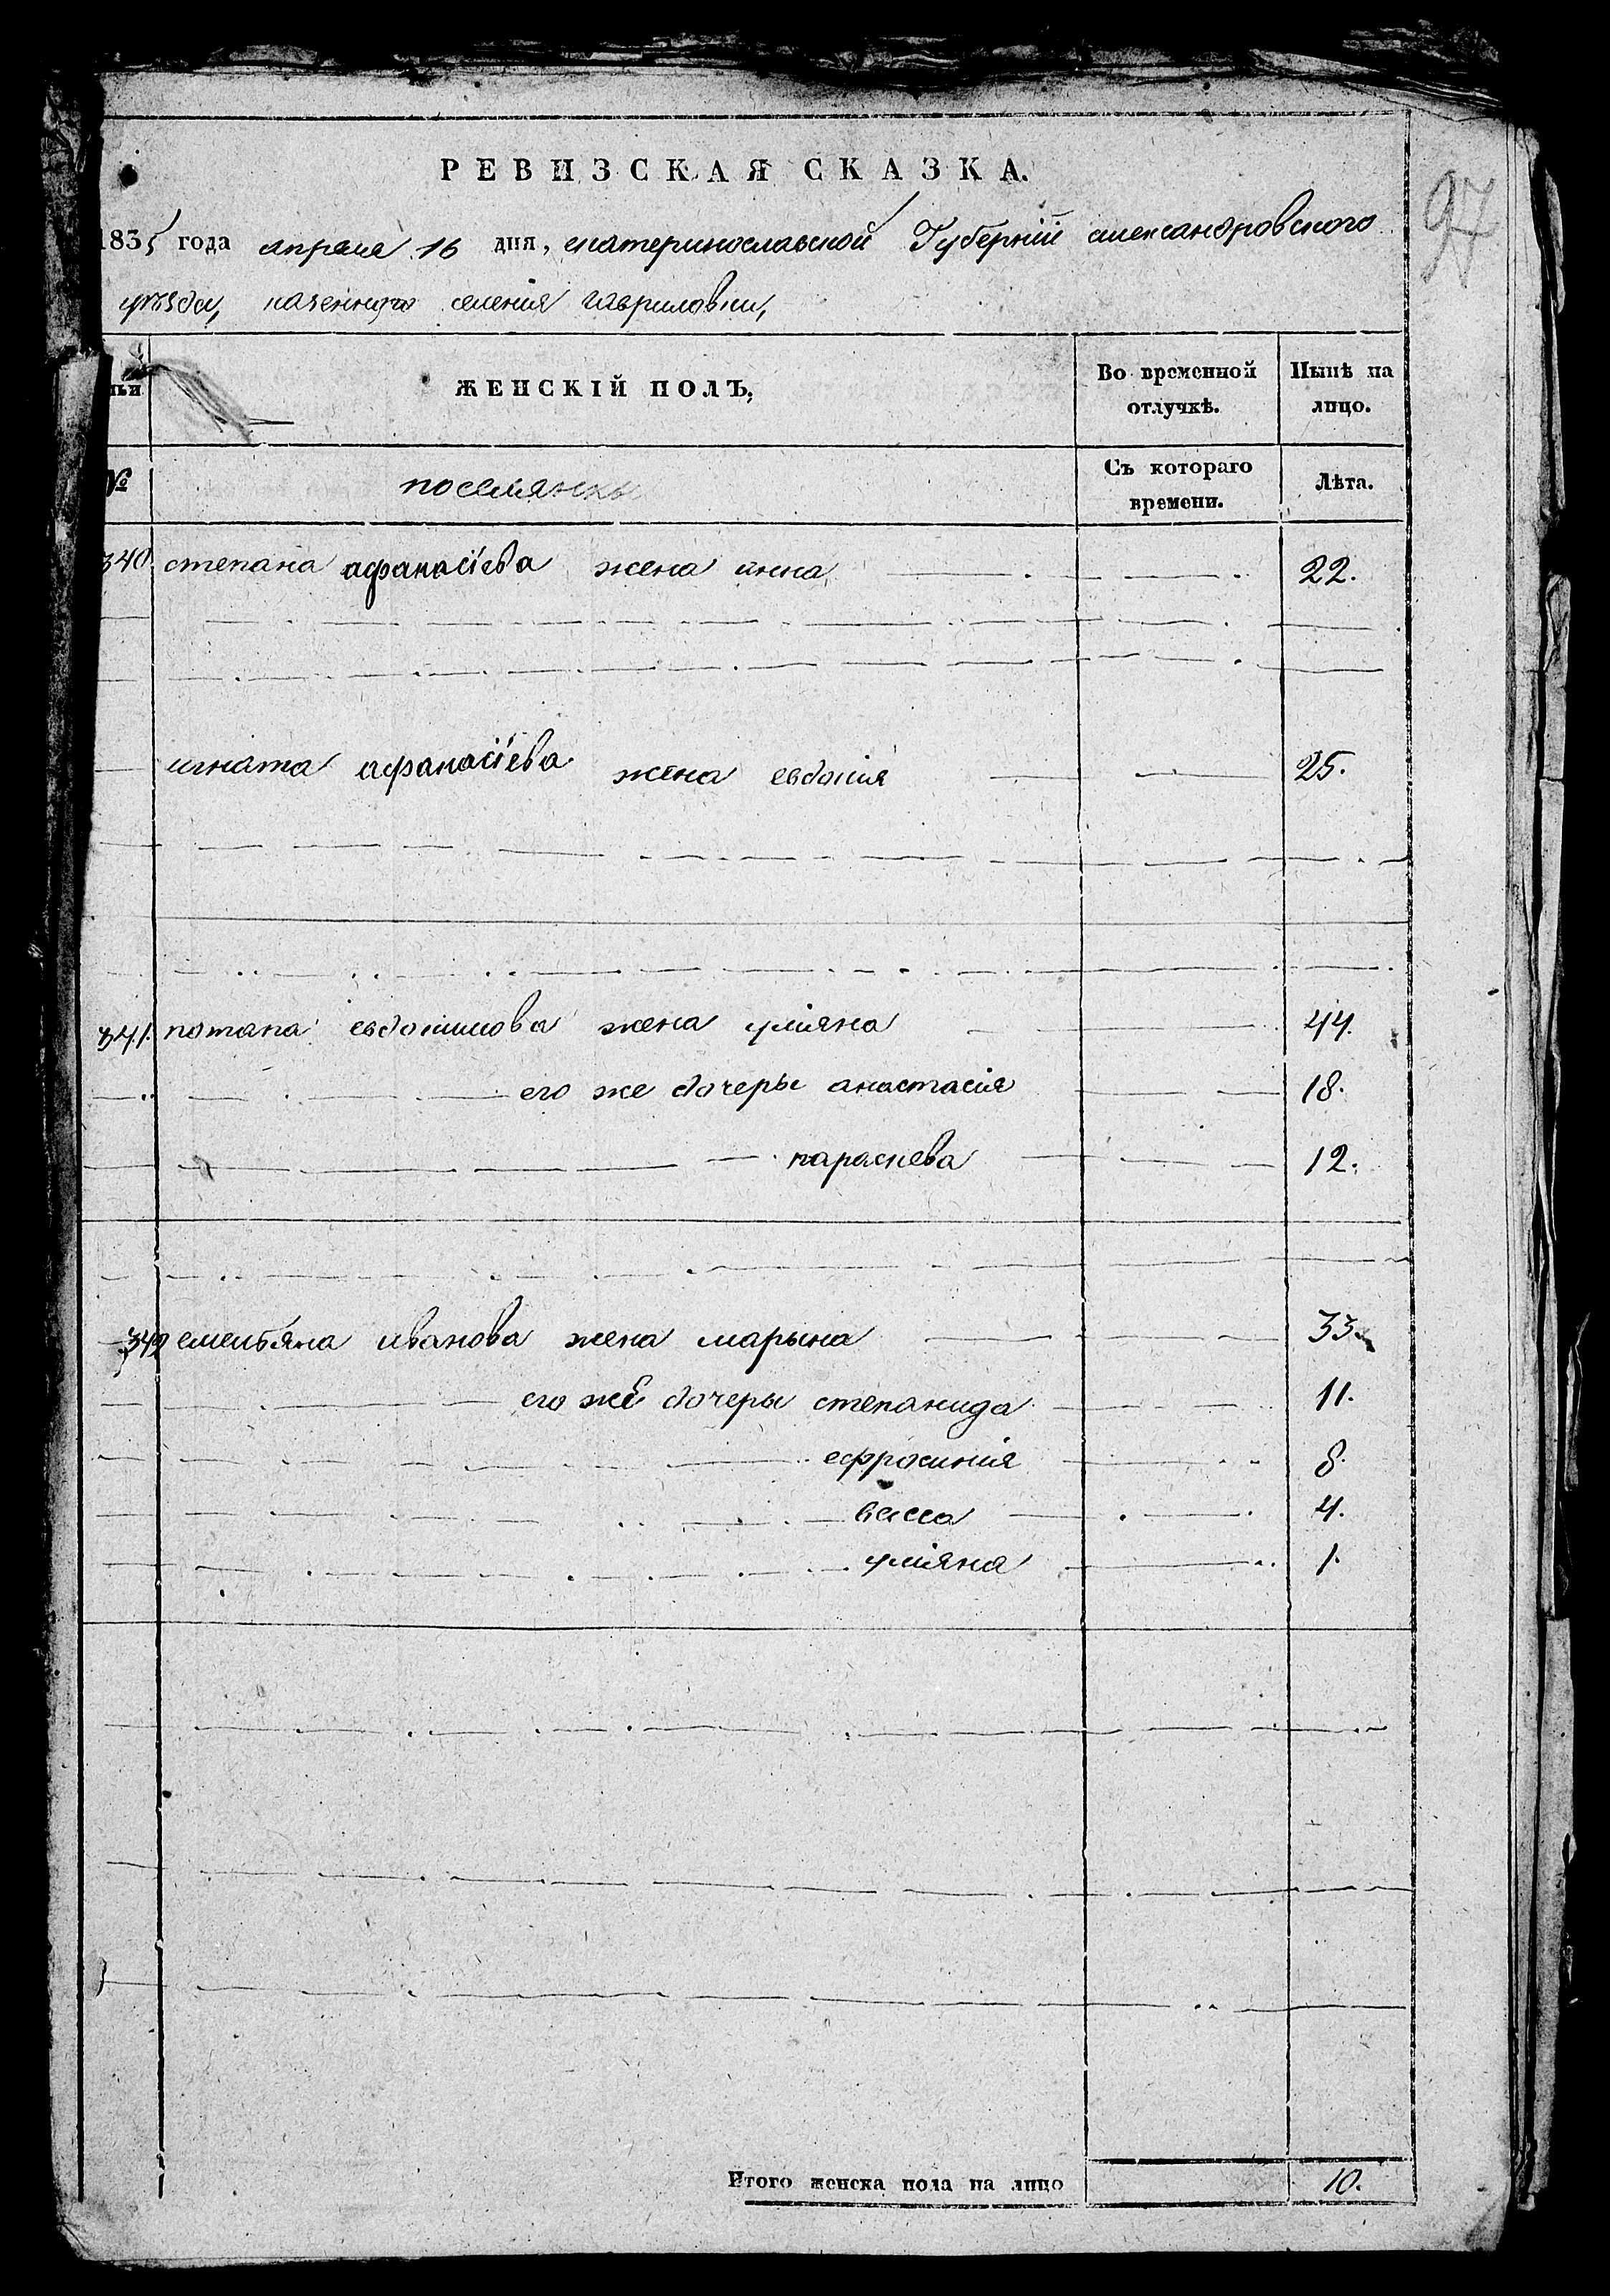 97
РЕВИЗСКАЯ СКАЗКА.
1835 года апреля 16 дня, екатеринославской Губерніи александровского
уѣзда, казенного селенія гавриловки,
ЖЕНСКІЙ ПОЛЪ.
Во временной отлучкѣ.
Нынѣ на лицо.
№
поселянки
Съ котораго времени.
Лѣта.
340 степана афанасіева жена анна 22.
игната афанасіева жена евдокія 25.
341. потапа евдокимова жена уліяна 44.
его же дочеры анастасія 18.
параскева 12.
342 емельяна иванова жена марына 33.
его же дочеры степанида 11.
ефросинія 8.
васса 4.
уліяна 1.
Итого женска пола на лицо 10.